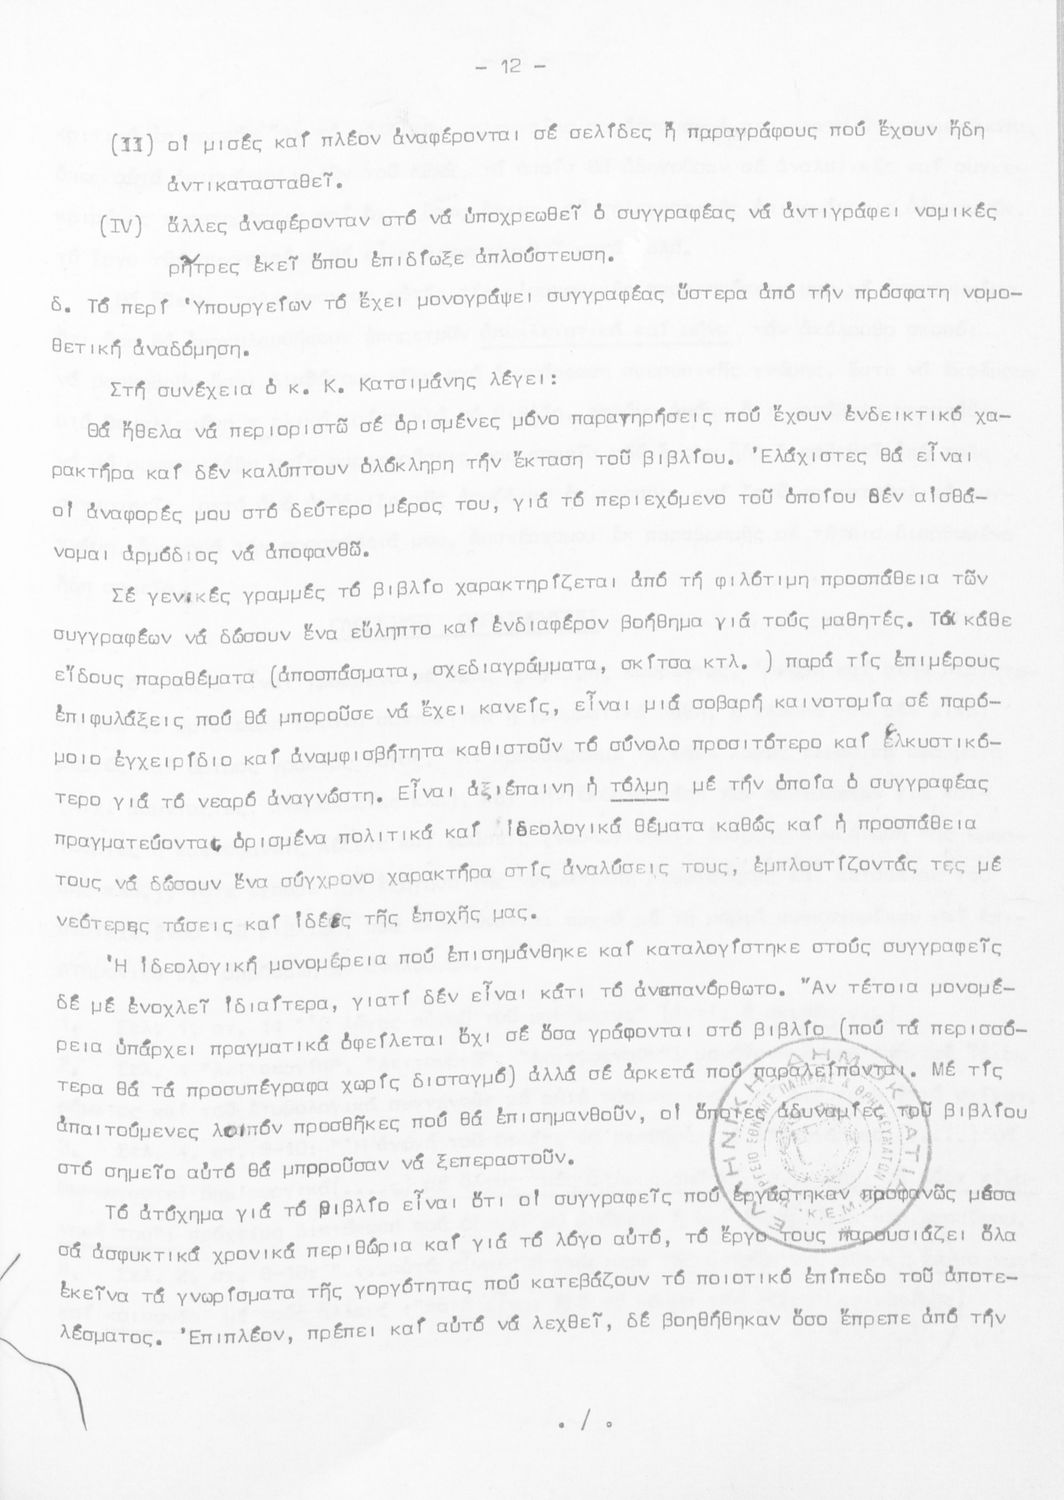 - 12 -
(II) οἱ μισές καί πλέον ἀναφέρονται σέ σελίδες ἤ παραγράφους πού ἔχουν ἤδη
ἀντικατασταθεῖ.
(IV) ἄλλες ἀναφέρονταν στό νά ὑποχρεωθεῖ ὁ συγγραφέας νά ἀντιγράφει νομικές
ρῆτρες ἐκεῖ ὅπου ἐπιδίωξε ἁπλούστευση.
δ. Τό περί Ὑπουργείων τό ἔχει μονογράψει συγγραφέας ὕστερα ἀπό τήν πρόσφατη νομο-
θετική ἀναδόμηση.
Στή συνέχεια ὁ κ. Κ. Κατσιμάνης λέγει:
Θά ἤθελα νά περιοριστῶ σέ ὁρισμένες μόνο παρατηρήσεις πού ἔχουν ἐνδεικτικό χα-
ρακτήρα καί δέν καλύπτουν ὁλόκληρη τήν ἔκταση τοῦ βιβλίου. Ἐλάχιστες θά εἶναι
οἱ ἀναφορές μου στό δεύτερο μέρος του, γιά τό περιεχόμενο τοῦ ὁποίου δέν αἰσθά-
νομαι ἁρμόδιος νά ἀποφανθῶ.
Σέ γενικές γραμμές τό βιβλίο χαρακτηρίζεται ἀπό τή φιλότιμη προσπάθεια τῶν
συγγραφέων νά δώσουν ἕνα εὔληπτο καί ἐνδιαφέρον βοήθημα γιά τούς μαθητές. Τά κάθε
εἴδους παραθέματα (ἀποσπάσματα, σχεδιαγράμματα, σκίτσα κτλ. ) παρά τίς ἐπιμέρους
ἐπιφυλάξεις πού θά μποροῦσε νά ἔχει κανείς, εἶναι μιά σοβαρή καινοτομία σέ παρό-
μοιο ἐγχειρίδιο καί ἀναμφισβήτητα καθιστοῦν τό σύνολο προσιτότερο καί ἑλκυστικό-
τερο γιά τό νεαρό ἀναγνώστη. Εἶναι ἀξιέπαινη ἡ τόλμη μέ τήν ὁποία ὁ συγγραφέας
πραγματεύονται ὁρισμένα πολιτικά καί ἰδεολογικά θέματα καθώς καί ἡ προσπάθεια
τους νά δώσουν ἕνα σύγχρονο χαρακτήρα στίς ἀναλύσεις τους, ἐμπλουτίζοντάς τες μέ
νεότερες τάσεις καί ἰδέες τῆς ἐποχῆς μας.
Ἡ ἰδεολογική μονομέρεια πού ἐπισημάνθηκε καί καταλογίστηκε στούς συγγραφεῖς
δέ μέ ἐνοχλεῖ ἰδιαίτερα, γιατί δέν εἶναι κάτι τό ἀνεπανόρθωτο. Ἄν τέτοια μονομέ-
ρεια ὑπάρχει πραγματικά ὀφείλεται ὄχι σέ ὅσα γράφονται στό βιβλίο (πού τά περισσό-
τερα θά τά προσυπέγραφα χωρίς δισταγμό) ἀλλά σέ ἀρκετά πού παραλείπονται. Μέ τίς
ἀπαιτούμενες λοιπόν προσθῆκες πού θά ἐπισημανθοῦν, οἱ ὅποιες ἀδυναμίες τοῦ βιβλίου
στό σημεῖο αὐτό θά μποροῦσαν νά ξεπεραστοῦν.
Τό ἀτύχημα γιά τό βιβλίο εἶναι ὅτι οἱ συγγραφεῖς πού ἐργάστηκαν προφανῶς μέσα
σά ἀσφυκτικά χρονικά περιθώρια καί γιά τό λόγο αὐτό, τό ἔργο τους παρουσιάζει ὅλα
ἐκεῖνα τά γνωρίσματα τῆς γοργότητας πού κατεβάζουν τό ποιοτικό ἐπίπεδο τοῦ ἀποτε-
λέσματος. Ἐπιπλέον, πρέπει καί αὐτό νά λεχθεῖ, δέ βοηθήθηκαν ὅσο ἔπρεπε ἀπό τήν
. / .
ΕΛΛΗΝΙΚΗ ΔΗΜΟΚΡΑΤΙΑ
Κ.Ε.Μ.Ε.